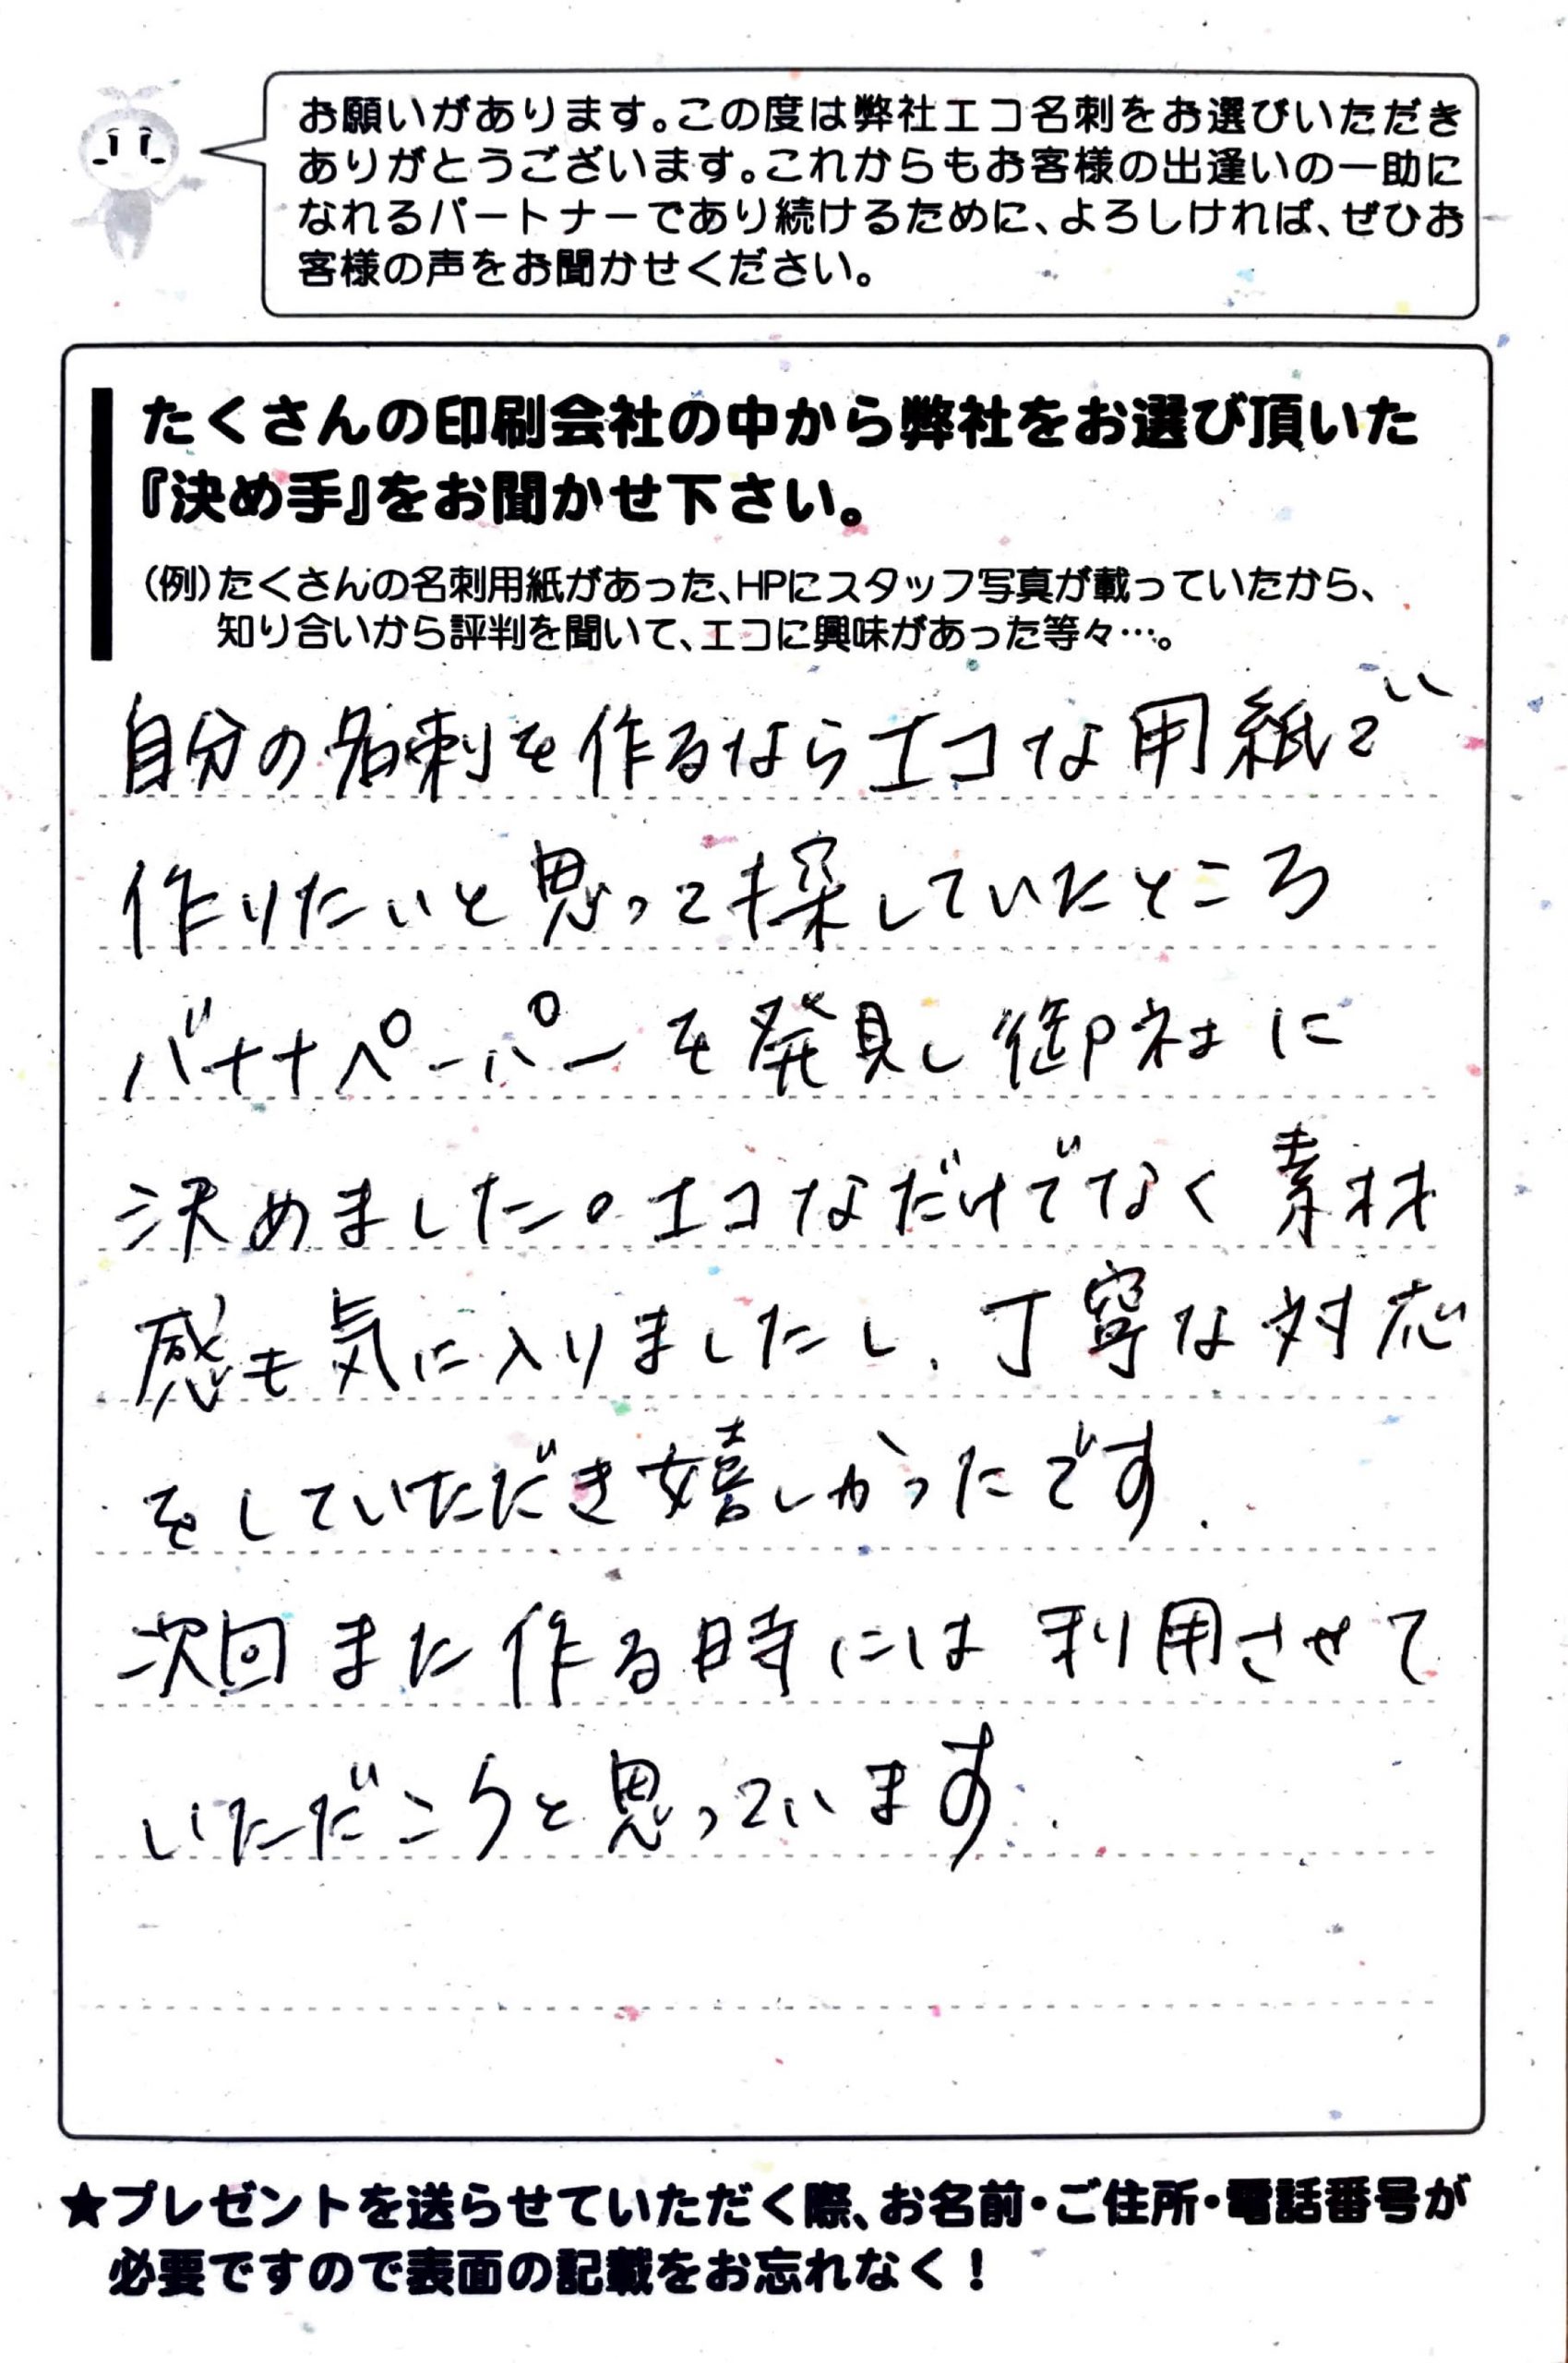 お願いがあります。この度は弊社エコ名刺をお選びいただき
ありがとうございます。これからもお客様の出逢いの一助に
なれるパートナーであり続けるために、よろしければ、ぜひお
客様の声をお聞かせください。
たくさんの印刷会社の中から弊社をお選び頂いた
『決め手』をお聞かせ下さい。
(例)たくさんの名刺用紙があった、HPにスタッフ写真が載っていたから、
知り合いから評判を聞いて、エコに興味があった等々…。
自分の名刺を作るならエコな用紙で
作りたいと思って探していたところ
バナナペーパーを発見し御社に
決めました。エコなだけでなく素材
感も気に入りましたし、丁寧な対応
をしていただき嬉しかったです.
次回また作る時には利用させて
いただこうと思っています.
★プレゼントを送らせていただく際、お名前・ご住所・電話番号が
必要ですので表面の記載をお忘れなく!